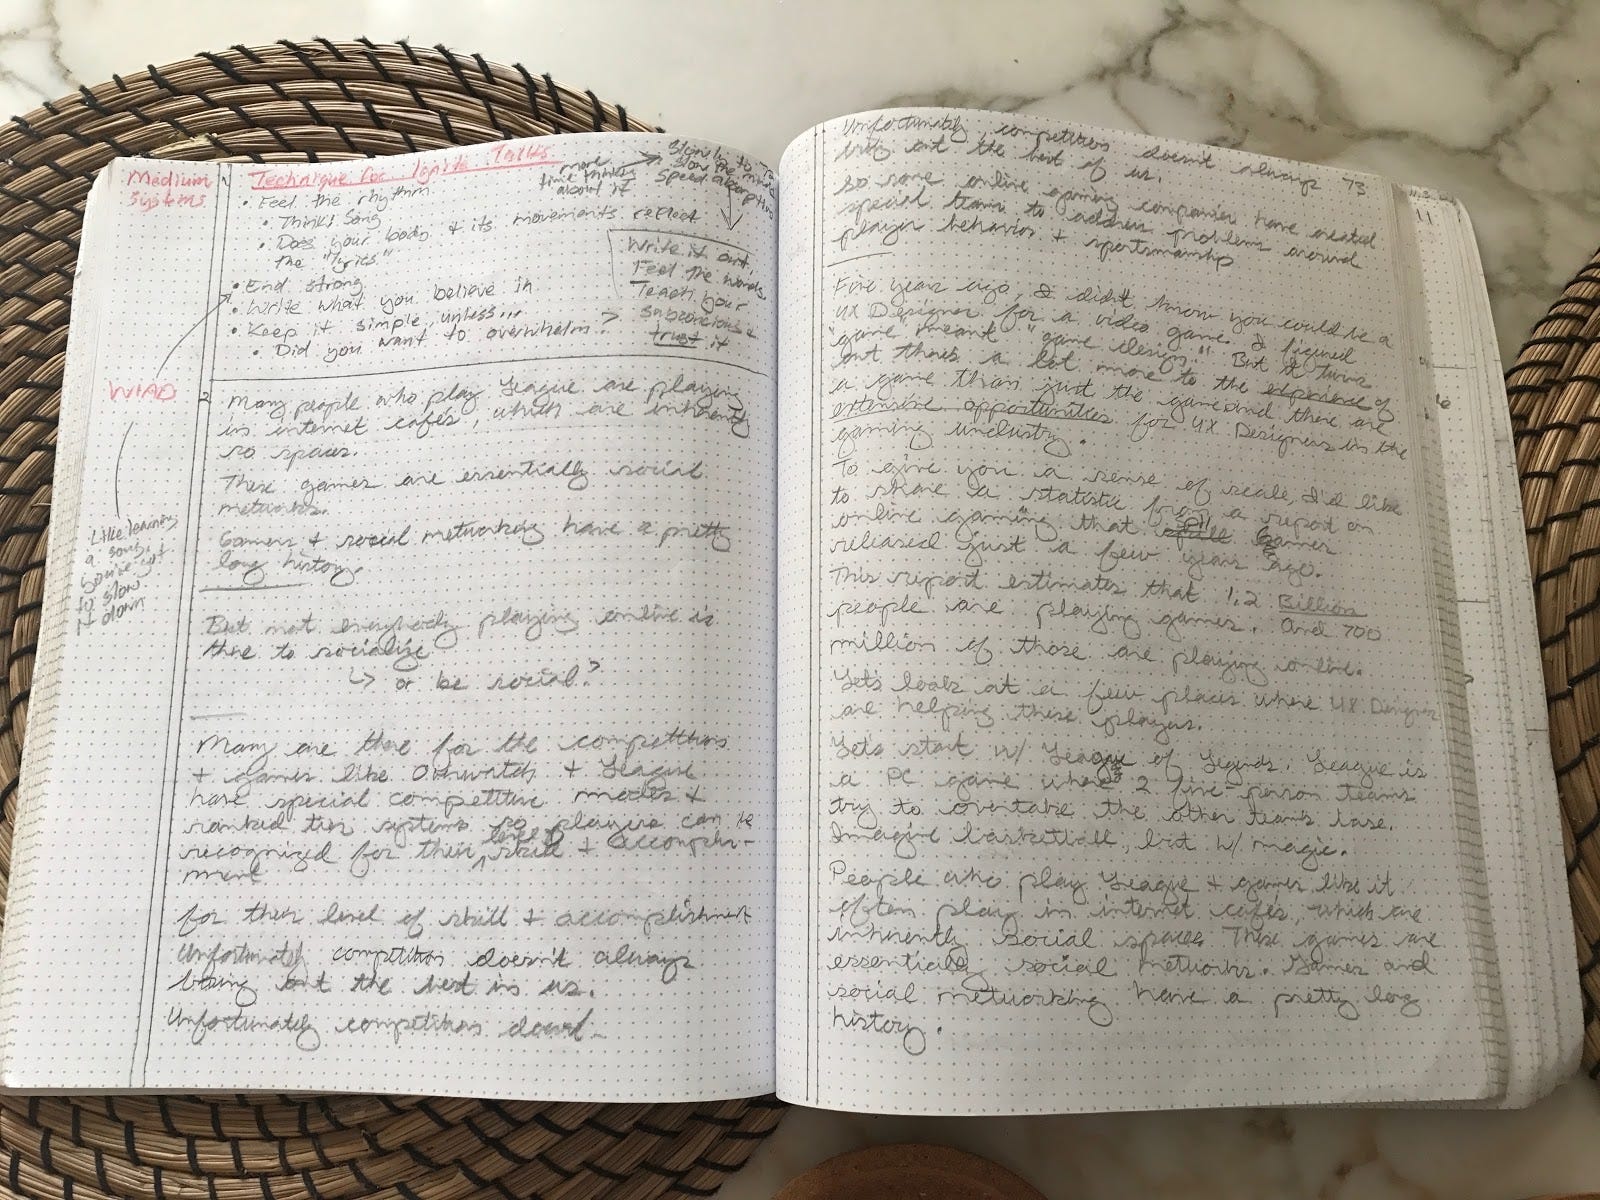 Medium
Systems
1
Technique for Ignite Talks
• Feel the rhythm
• Think: Song
• Does your body & its movements reflect
the "lyrics"
• End strong
• Write what you believe in
• Keep it simple, unless...
• Did you want to overwhelm?
more
time thinking
about it
Slow
speed
Write it out,
Feel the words,
Teach your
subconcious &
trust it
WIAD
Like learning
a song,
you've got
to slow
it down
2
Many people who play League are playing
in internet cafés, which are inherently
so spaces.
These games are essentially social
networks.
Gamers & social networking have a pretty
long history.
But not everybody playing online is
there to socialize
↳ or be social?
Many are there for the competition
& games like Overwatch & League
have special competitive modes &
ranked tier systems so players can be
recognized for their level of skill & accomplish-
ment
for their level of skill & accomplishment
Unfortunately competition doesn't always
bring out the best in us.
Unfortunately competition
73
Unfortunately, competition doesn't always
bring out the best of us.
So some online gaming companies have created
special teams to address problems around
player behavior & sportsmanship
Five years ago, I didn't know you could be a
UX Designer for a video game. I figured
"game" meant "game design." But it turns
out theres a lot more to the experience of
a game than just the game and there are
extensive opportunities for UX Designers in the
gaming industry.
To give you a sense of scale, I'd like
to share a statistic from a report on
online gaming that Spil Games
released just a few years ago.
This report estimates that 1.2 Billion
people are playing games. And 700
million of those are playing online.
Let's look at a few places where UX Designers
are helping these players.
Let's start w/ League of Legends. League is
a PC game where 2 five-person teams
try to overtake the other teams base.
Imagine basketball, but w/ magic.
People who play League & games like it
often play in internet cafés, which are
inherently social spaces. These games are
essentially social networks. Games and
social networking have a pretty long
history.